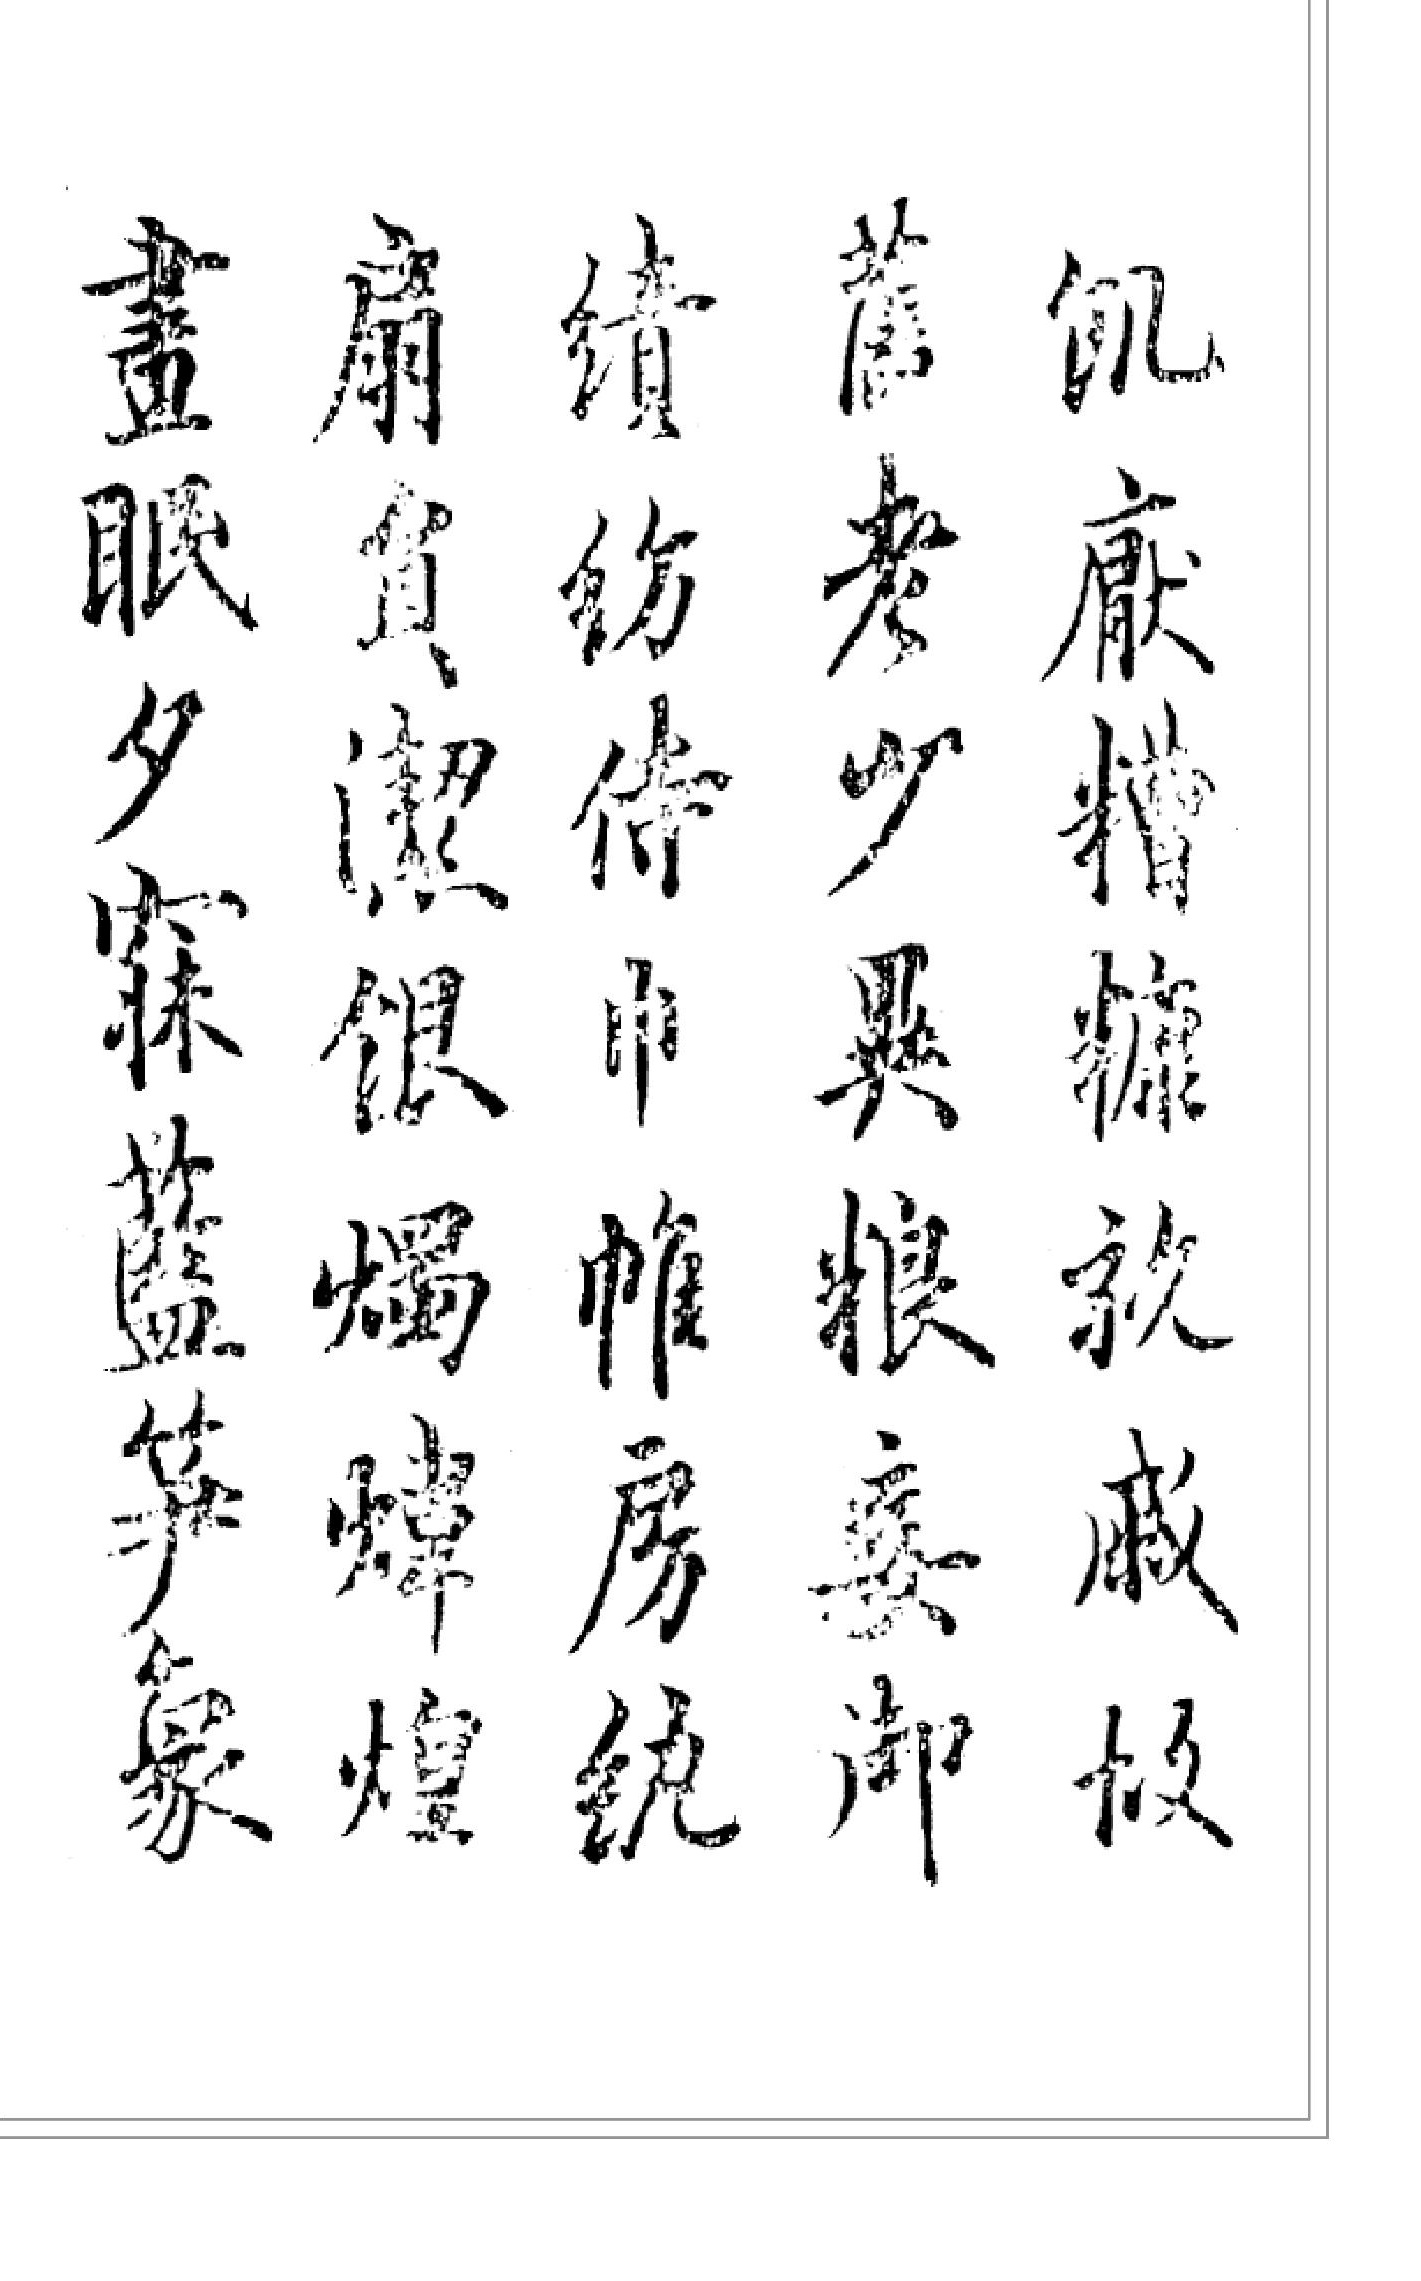 飢厭糟糠親戚故
舊老少異粮妾御
績紡侍巾帷房紈
扇員潔銀燭煒煌
晝眠夕寐藍笋象